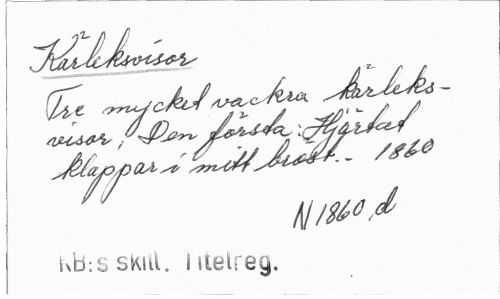 Kärleksvisor
Tre mycket vackra kärleks-
visor, Den första: Hjärtat
klappar i mitt bröst.- 1860
N 1860 d
KB:s skill. Titelreg.